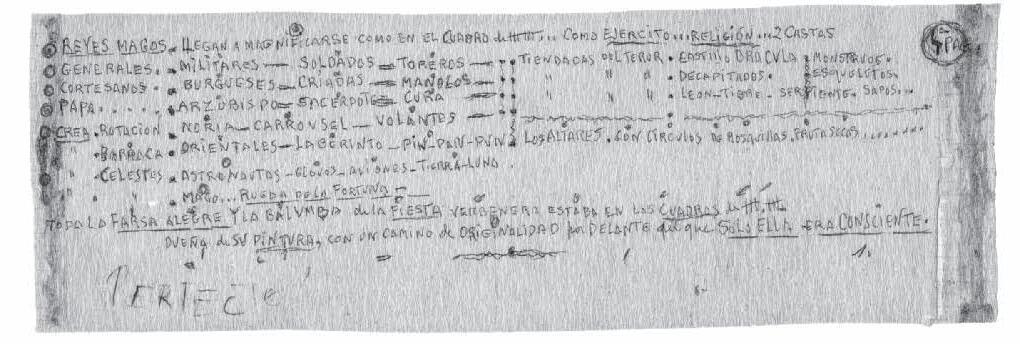 REYES MAGOS. LLEGAN A MAGNIFICARSE COMO EN EL CUADRO de M.M... COMO EJERCITO... RELIGIÓN... 2 CASTAS
GENERALES. MILITARES — SOLDADOS — TOREROS — TIENDACAS DEL TEROR. CASTILLO DRACULA. MONSTRUOS.
CORTESANOS. BURGUESES — CRIADAS — MANOLOS — " " " DECAPITADOS. ESQUELETOS.
PAPA..... ARZOBISPO — SACERDOTE — CURA — " " " LEON — TIGRE — SERPIENTE. SAPOS...
CREA. ROTACION. NORIA — CARROUSEL — VOLANTES
" BARRACA. ORIENTALES — LABERINTO — PIN-PAN-PUN LOS ALTARES. CON CIRCULOS DE ROSQUILLAS. FRUTA SECAS........
" CELESTES. ASTRONAUTAS — GLOVOS — AVIONES — TIERRA — LUNA.
" " . MAGO... RUEDA DE LA FORTUNA —
TODA LA FARSA ALEGRE Y LA BALUMBA de la FIESTA VERBENERA ESTABA EN LOS CUADROS de M.M.
DUEÑA de SU PINTURA, CON UN CAMINO de ORIGINALIDAD por DELANTE del que SOLO ELLA ERA CONSCIENTE.
1.